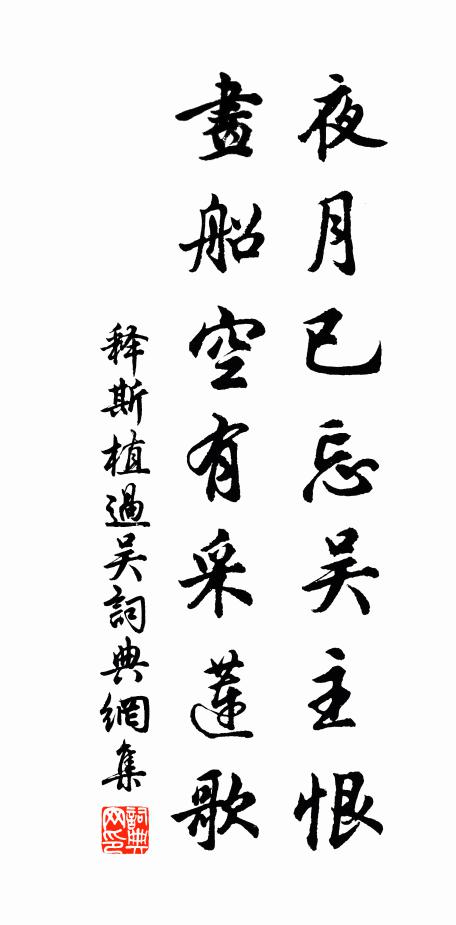 夜月已忘吴主恨
畫船空有采蓮歌
释斯植過吴詞典網集
詞典网印